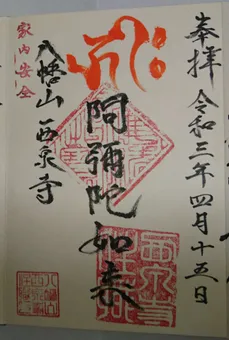 奉拝 令和三年四月十五日
阿彌陀如来
八幡山 西泉寺
家内安全